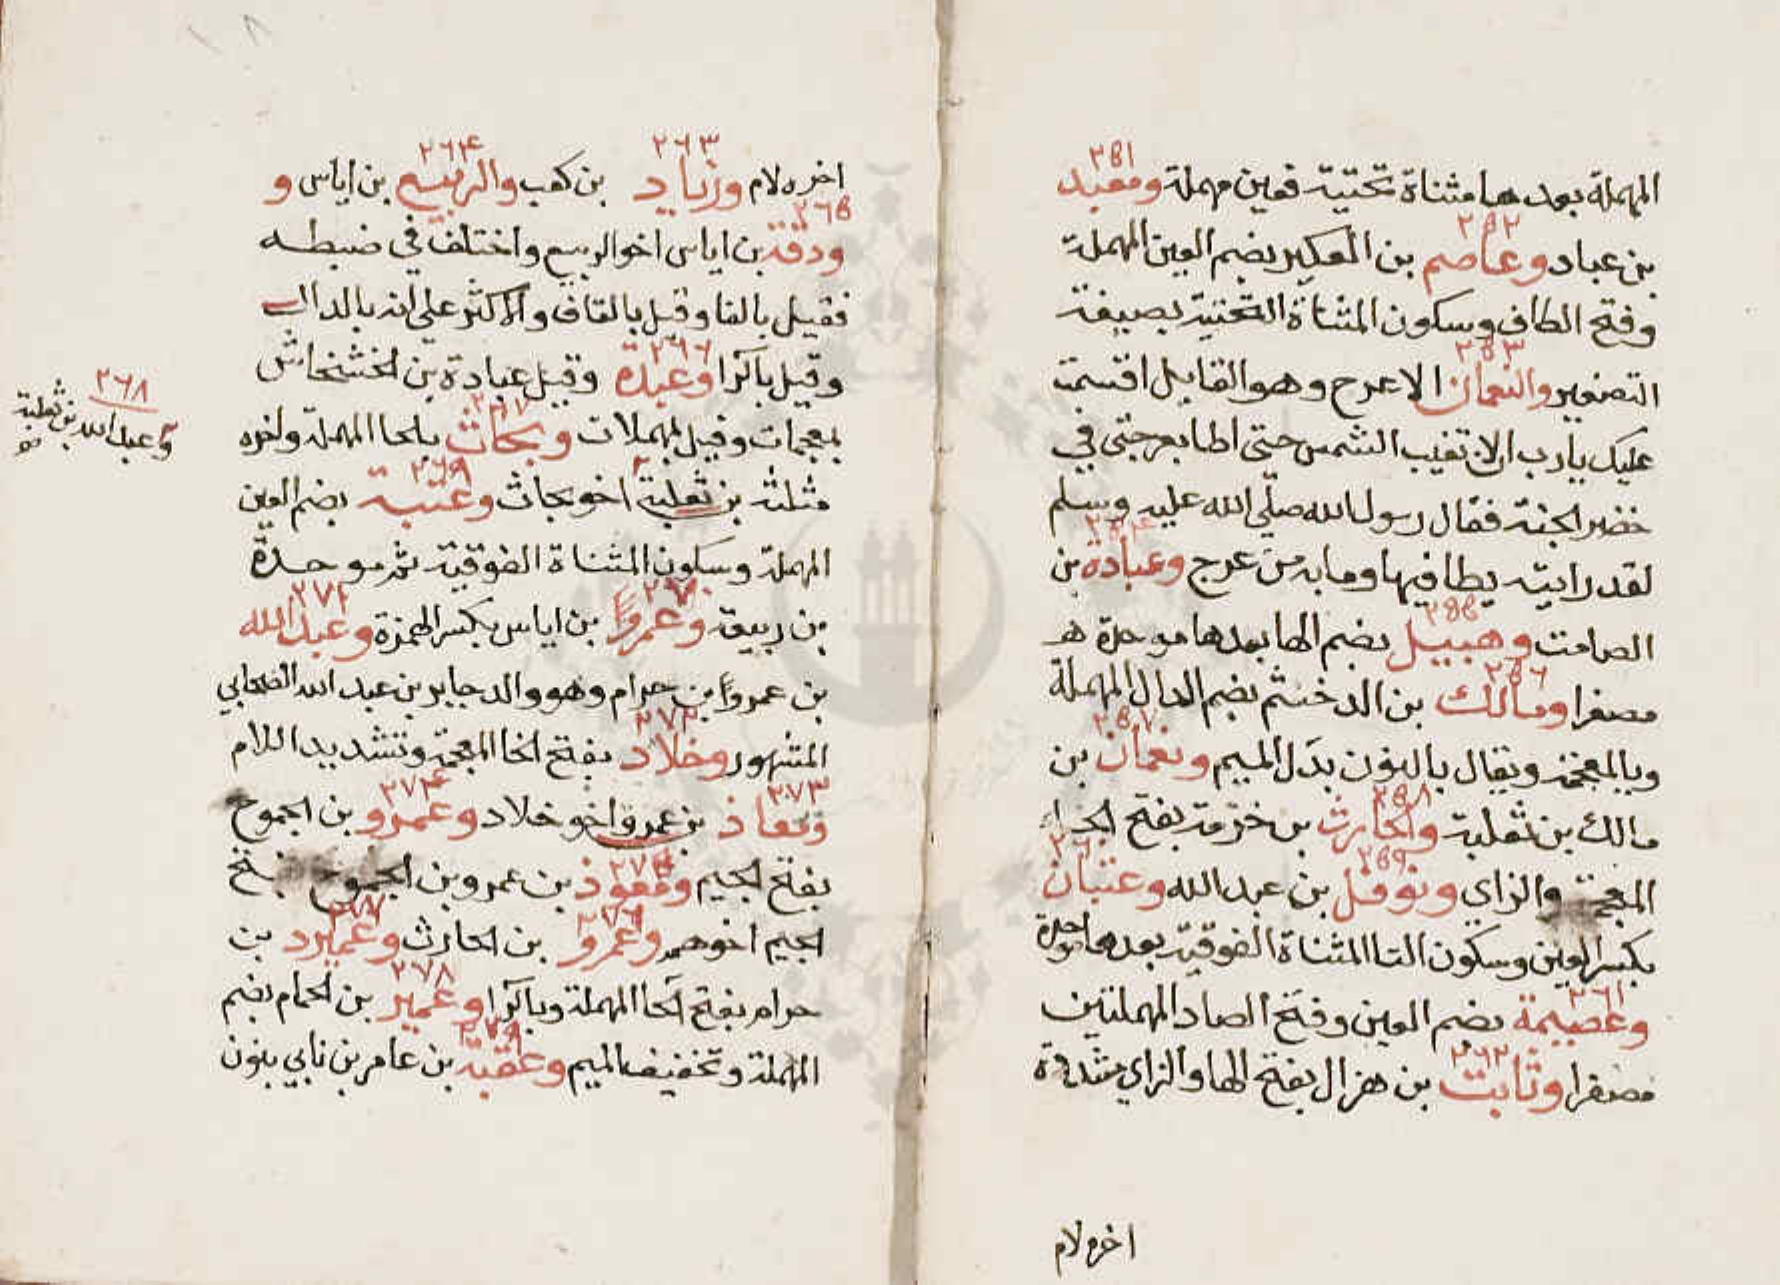 ٢٥١
المهملة بعدها مثناة تحتية فعين مهملة ومعبد
٢٥٢
بن عباد وعاصم بن العكير بضم العين المهملة
وفتح الكاف وسكون المثناة التحتية بصيغة
٢٥٣
التصغير والنعمان الاعرج وهو القايل اقسمت
عليك يا رب ان لا تغيب الشمس حتى اطا بعرجتي في
خضر الجنة فقال رسول الله صلى الله عليه وسلم
٢٥٤
لقد رايته يطا فيها وما به من عرج وعبادة بن
٢٥٥
الصامت وهبيل بضم الها بعدها موحدة
٢٥٦
مصغرا ومالك بن الدخشم بضم الدال المهملة
٢٥٧
وبالمعجمة ويقال بالنون بدل الميم ونعمان بن
٢٥٨
مالك بن ثعلبة والحارث بن خزمة بفتح الخا
٢٥٩ ٢٦٠
المعجمة والزاي ونوفل بن عبد الله وعتبان
بكسر العين وسكون التا المثناة الفوقية بعدها موحدة
٢٦١
وعصيمة بضم العين وفتح الصاد المهملتين
٢٦٢
مصغرا وثابت بن هزال بفتح الها والزاي مشددة
اخره لام
١٨
٢٦٣ ٢٦٤
اخره لام وزياد بن كعب والربيع بن اياس و
٢٦٥
ودقة بن اياس اخو الربيع واختلف في ضبطه
فقيل بالفا وقيل بالقاف والاكثر على انه بالدال
٢٦٦
وقيل بالرا وعبدة وقيل عبادة بن الخشخاش
٢٦٧
بمعجمات وقيل بمهملات وبحاث بالحا المهملة واخره
٢٦٩
مثلثة بن ثعلبة اخو بحاث وعتبة بضم العين
٢٦٨
وعبد الله بن ثعلبة
المهملة وسكون المثناة الفوقية ثم موحدة
٢٧٠ ٢٧١
بن ربيعة وعمرو بن اياس بكسر الهمزة وعبد الله
بن عمرو بن حرام وهو والد جابر بن عبد الله الصحابي
٢٧٢
المشهور وخلاد بفتح الخا المعجمة وتشديد اللام
٢٧٣ ٢٧٤
ومعاذ بن عمرو اخو خلاد وعمرو بن الجموح
بفتح الجيم ومعوذ بن عمرو بن الجموح بفتح
٢٧٦ ٢٧٧
الجيم اخوهم وعمرو بن الحارث وعمير بن
٢٧٨
حرام بفتح الحا المهملة وبالرا وعمير بن الحمام بضم
٢٧٩
المهملة وتخفيف الميم وعقبة بن عامر بن نابي بنون